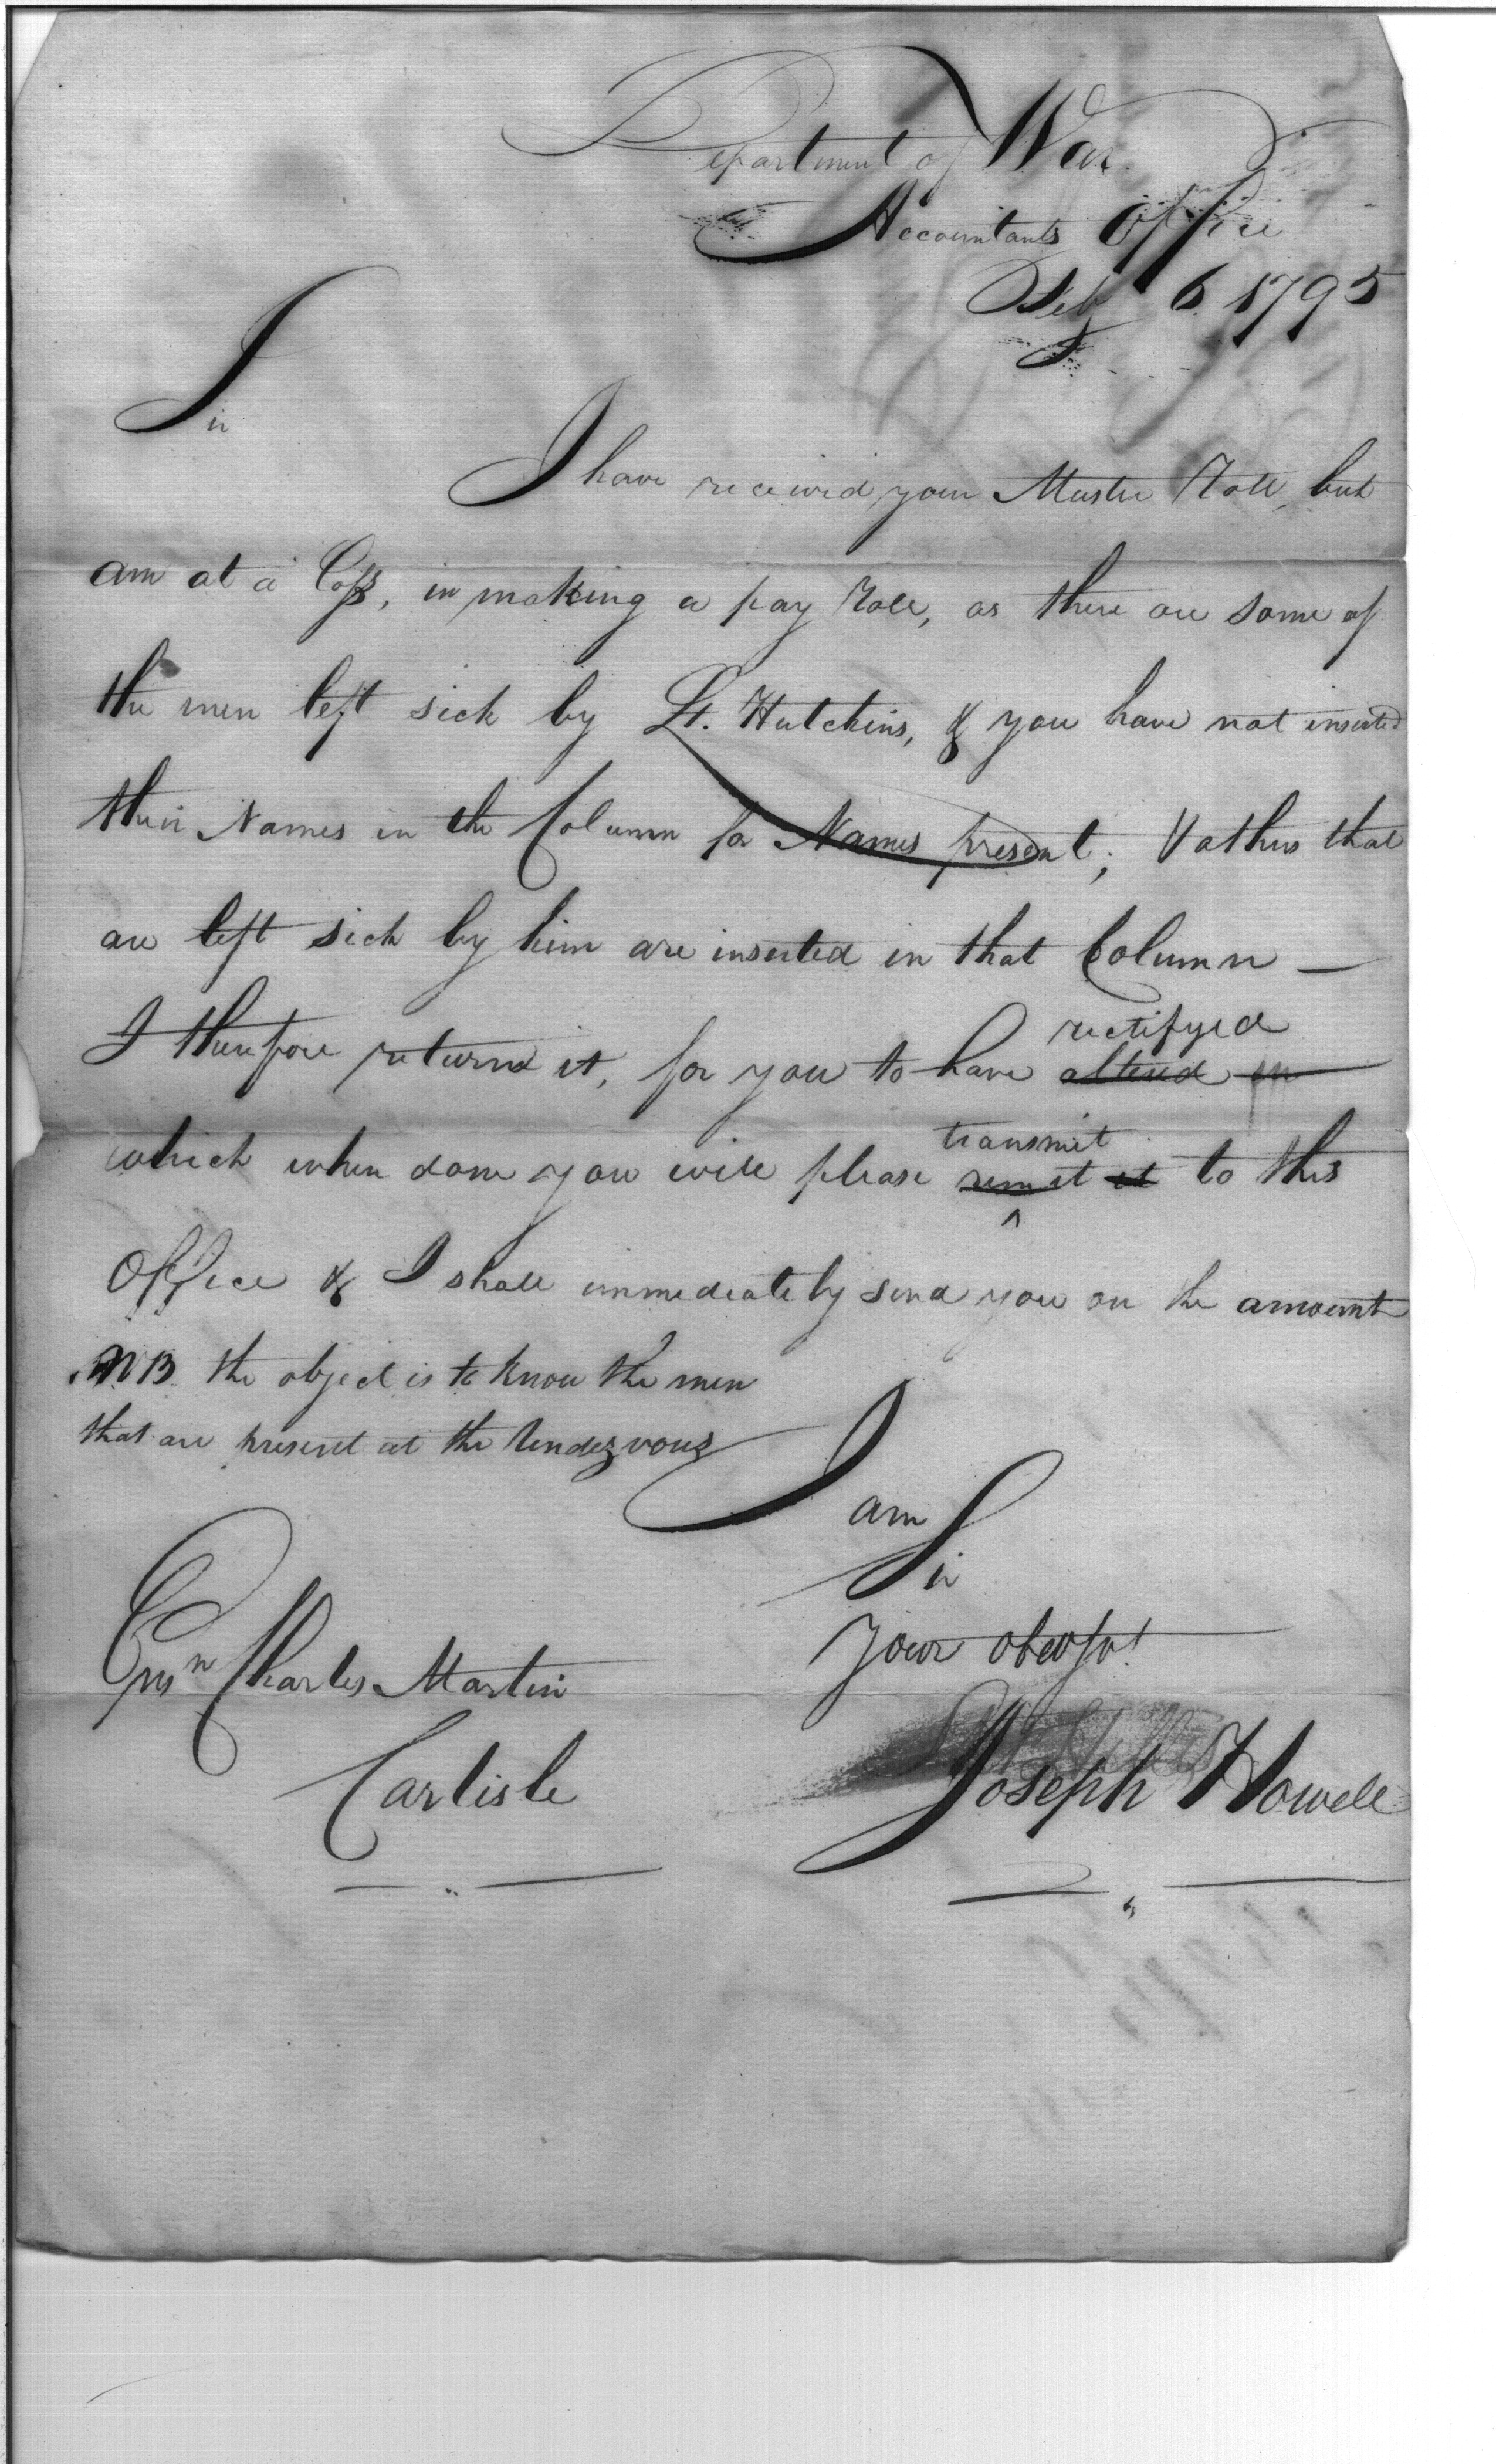 Department of War
Accountants Office
Feby 6 1795
Sir
I have received your Muster Roll, but
am at a Loss, in making a pay Roll, as there are some of
the men left sick by Lt. Hutchins, & you have not inserted
their Names in the Column for Names present; & others that
are left sick by him are inserted in that Column —
I therefore return it, for you to have altered rectifyed
which when done you will please remit it transmit to this
Office & I shall immediately send you on the amount
NB. the object is to know the men
that are present at the Rendezvous
I am
Sir
Your obed Svt
Ensn Charles Martin
Carlisle
Joseph Howell